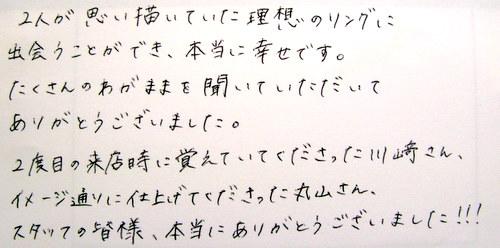 2人が思い描いていた理想のリングに
出会うことができ、本当に幸せです。
たくさんのわがままを聞いていただいて
ありがとうございました。
2度目の来店時に覚えていてくださった川﨑さん、
イメージ通りに仕上げてくださった丸山さん、
スタッフの皆様、本当にありがとうございました!!!